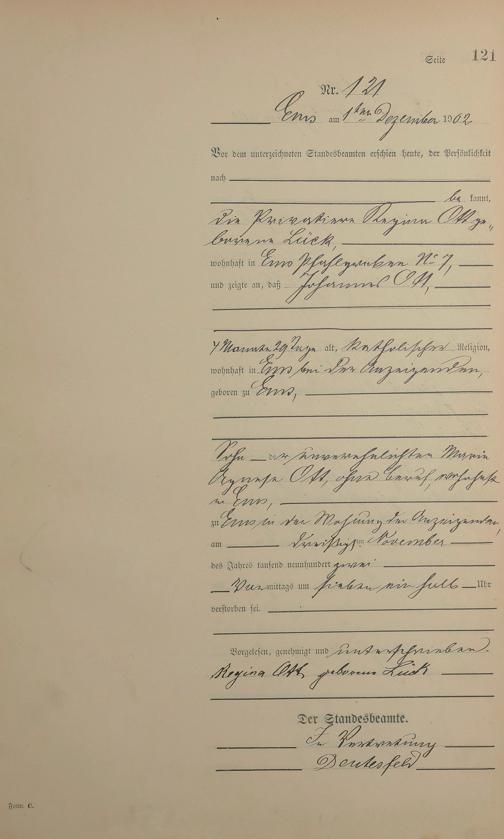 Seite 121
Nr. 121
Ems am 1ten Dezember 1902
Vor dem unterzeichneten Standesbeamten erschien heute, der Persönlichkeit
nach
be kannt,
die Privatiere Regina Ott ge„
borene Lück,
wohnhaft in Ems Pfahlgraben No 7,
und zeigte an, daß Johannes Ott,
4 Monate 29 Tage alt, katholischer Religion,
wohnhaft in Ems bei der Anzeigenden,
geboren zu Ems,
Sohn der unverehelichten Marie
Agnese Ott, ohne Beruf, wohnhaft
in Ems,
zu Ems in der Wohnung der Anzeigenden,
am dreißigsten November
des Jahres tausend neunhundert zwei
Vormittags um sieben ein halb Uhr
verstorben sei.
Vorgelesen, genehmigt und unterschrieben.
Regina Ott geborene Lück
Der Standesbeamte.
In Vertretung
Form. C.